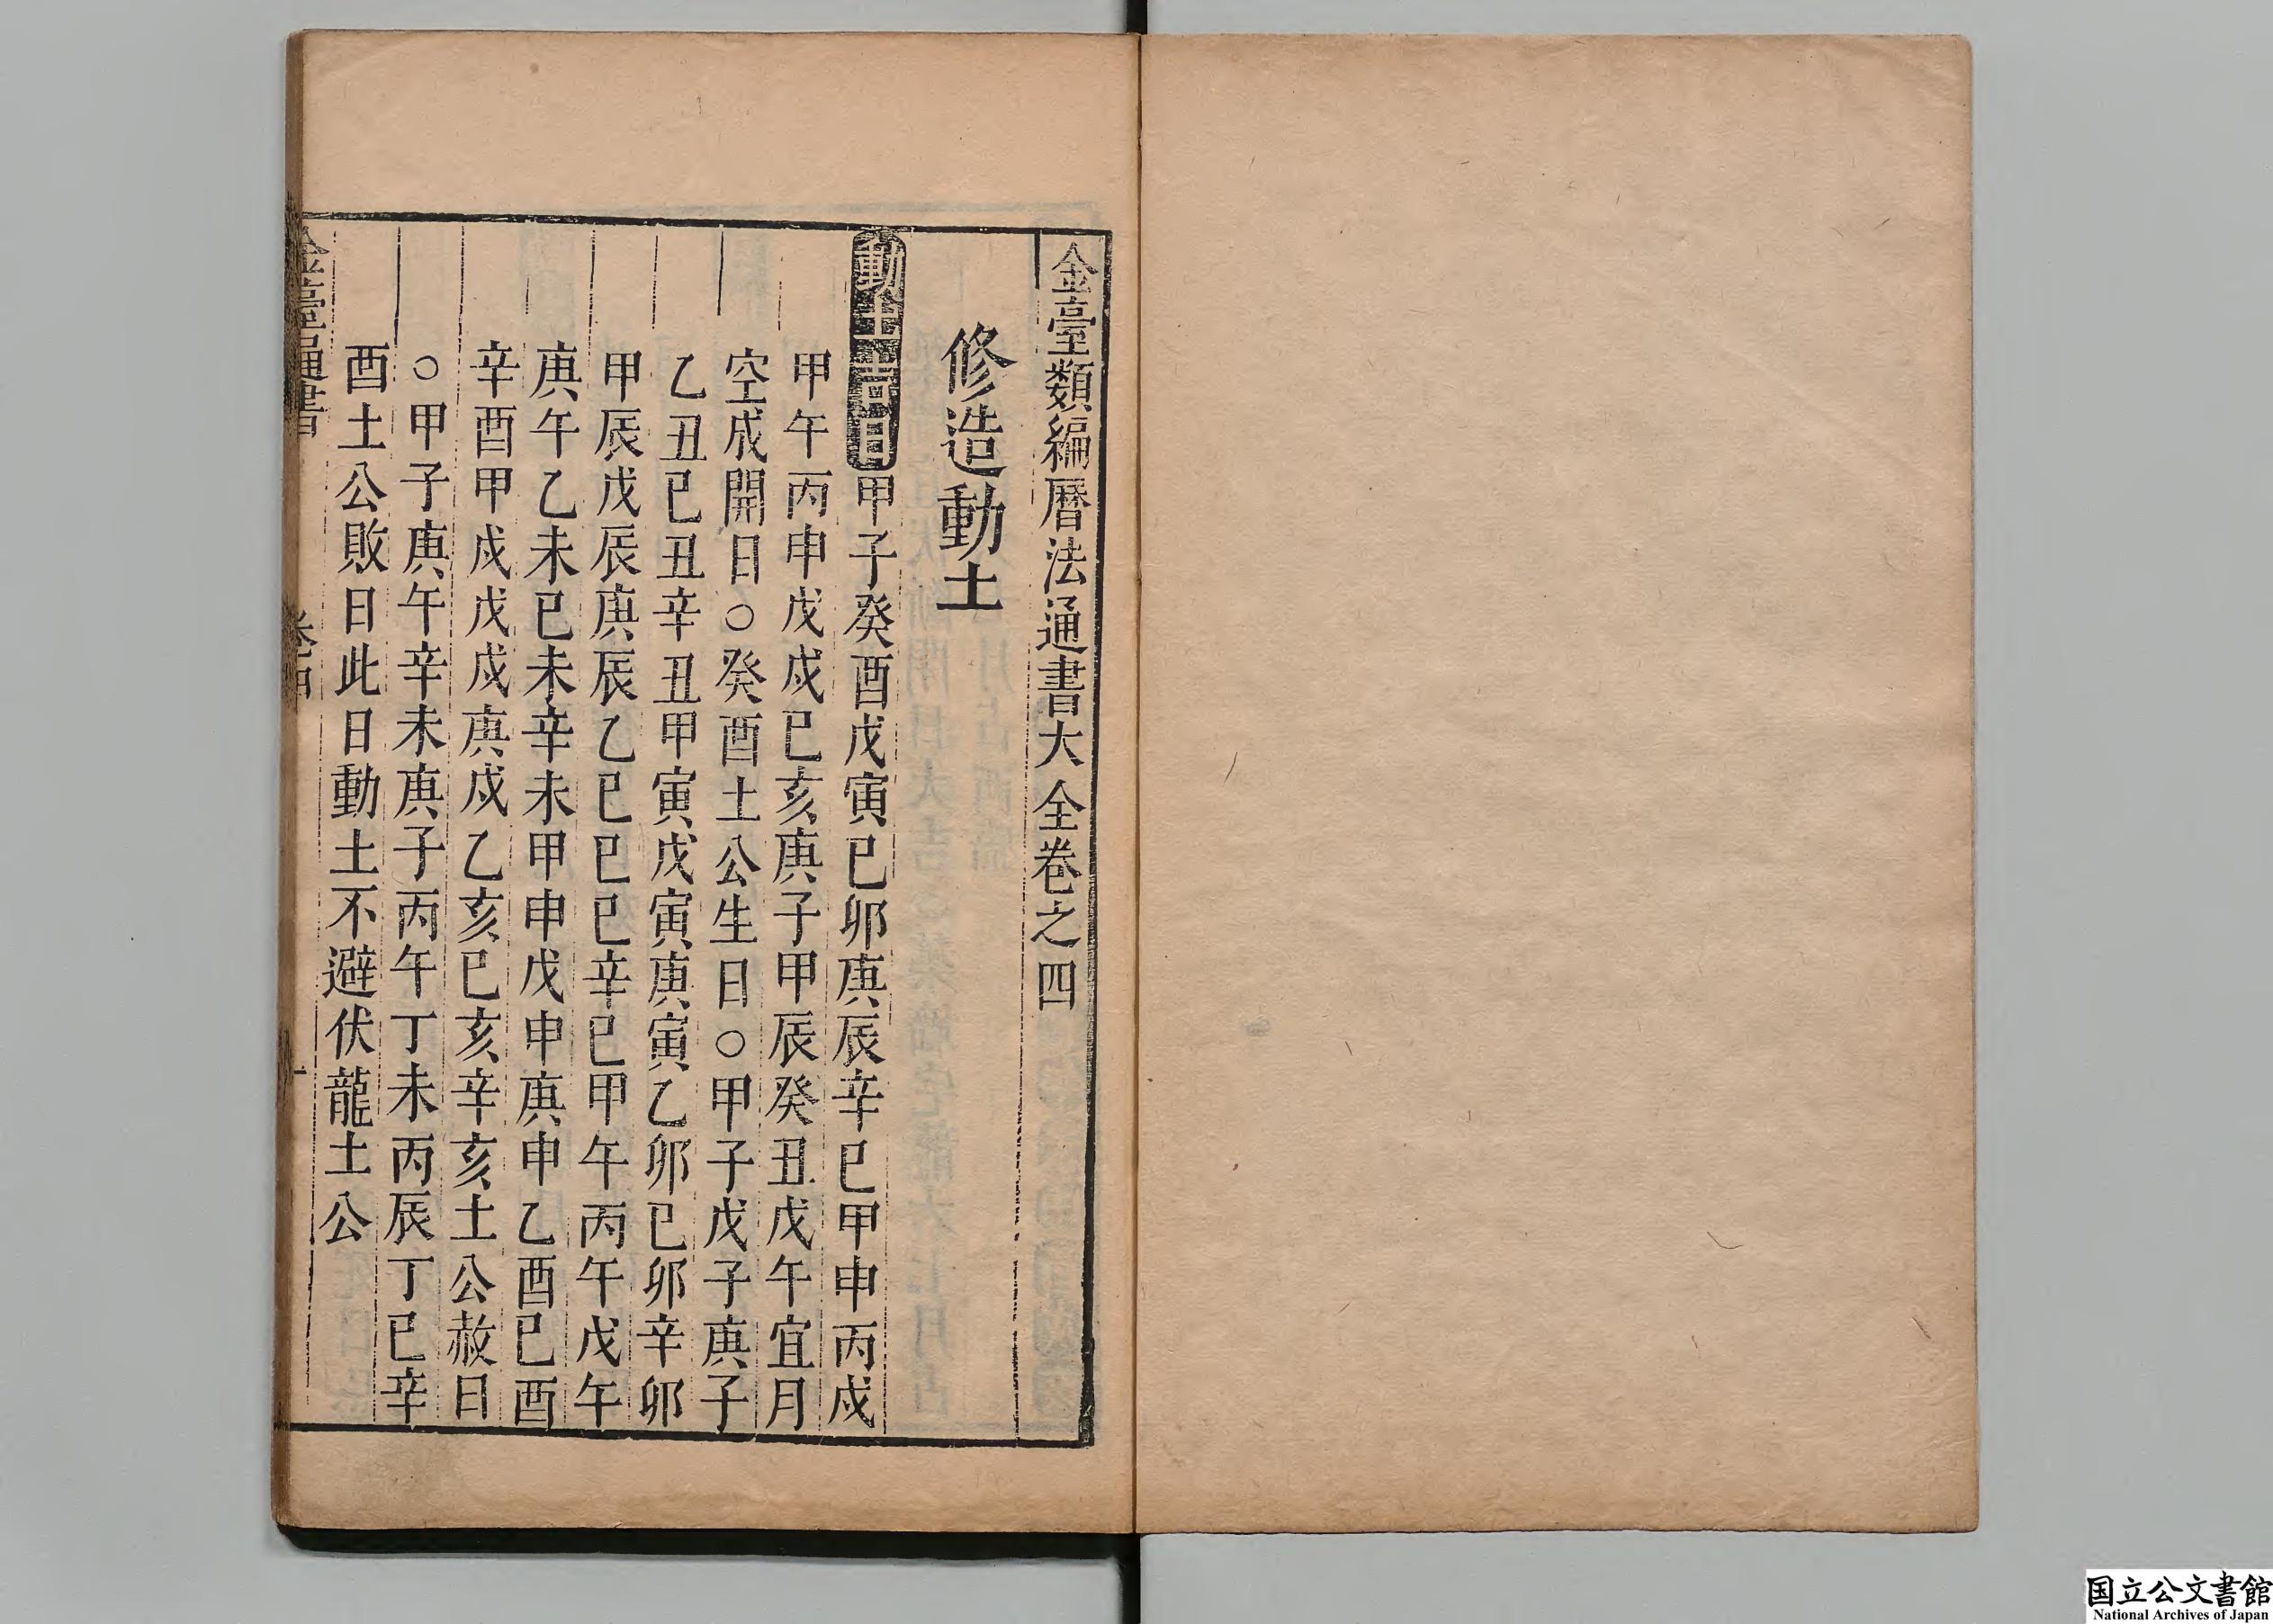 金臺類編曆法通書大全卷之四
修造動土
動土吉日甲子癸酉戊寅己卯庚辰辛巳甲申丙戌
甲午丙申戊戌己亥庚子甲辰癸丑戊午宜月
空成開日○癸酉土公生日○甲子戊子庚子
乙丑己丑辛丑甲寅戊寅庚寅乙卯己卯辛卯
甲辰戊辰庚辰乙巳己巳辛巳甲午丙午戊午
庚午乙未己未辛未甲申戊申庚申乙酉己酉
辛酉甲戌戊戌庚戌乙亥己亥辛亥土公赦日
○甲子庚午辛未庚子丙午丁未丙辰丁巳辛
酉土公敗日此日動土不避伏龍土公
金臺通書 卷四 一
国立公文書館
National Archives of Japan